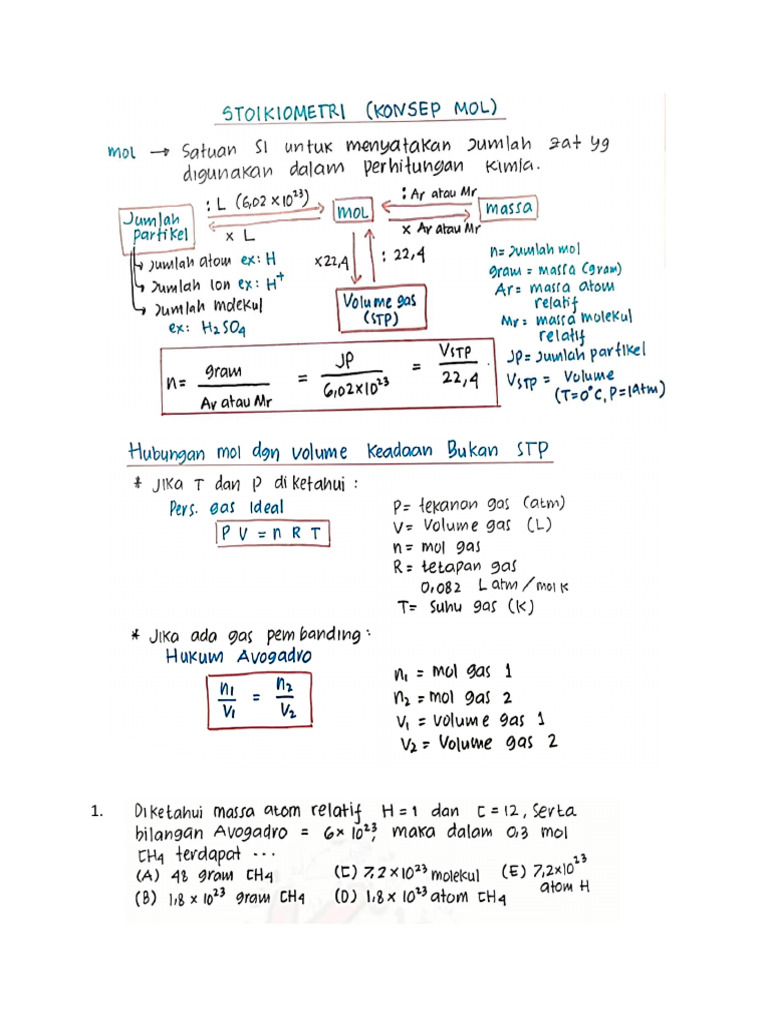 STOIKIOMETRI (KONSEP MOL)
mol → Satuan SI untuk menyatakan Jumlah zat yg
digunakan dalam perhitungan kimia.
: L (6,02 × 10²³)
: Ar atau Mr
Jumlah partikel
MOL
massa
x L
x Ar atau Mr
→ Jumlah atom ex: H
→ Jumlah Ion ex: H⁺
→ Jumlah molekul
ex: H₂SO₄
x22,4
: 22,4
Volume gas
(STP)
n= Jumlah mol
gram = massa (gram)
Ar = massa atom
relatif
Mr = massa molekul
relatif
JP = Jumlah partikel
VSTP = Volume
(T=0°C, P=1atm)
n = gram / Ar atau Mr = JP / 6,02×10²³ = VSTP / 22,4
Hubungan mol dgn volume Keadaan Bukan STP
* JIKA T dan P diketahui :
Pers. gas Ideal
P V = n R T
P= tekanan gas (atm)
V= Volume gas (L)
n= mol gas
R= tetapan gas
0,082 L atm/mol K
T= Suhu gas (K)
* Jika ada gas pembanding :
Hukum Avogadro
n₁ / V₁ = n₂ / V₂
n₁ = mol gas 1
n₂ = mol gas 2
V₁ = volume gas 1
V₂ = Volume gas 2
1. Diketahui massa atom relatif H = 1 dan C = 12, Serta
bilangan Avogadro = 6× 10²³, maka dalam 0,3 mol
CH₄ terdapat ...
(A) 48 gram CH₄ (C) 7,2 × 10²³ molekul (E) 7,2×10²³ atom H
(B) 1,8 × 10²³ gram CH₄ (D) 1,8 × 10²³ atom CH₄